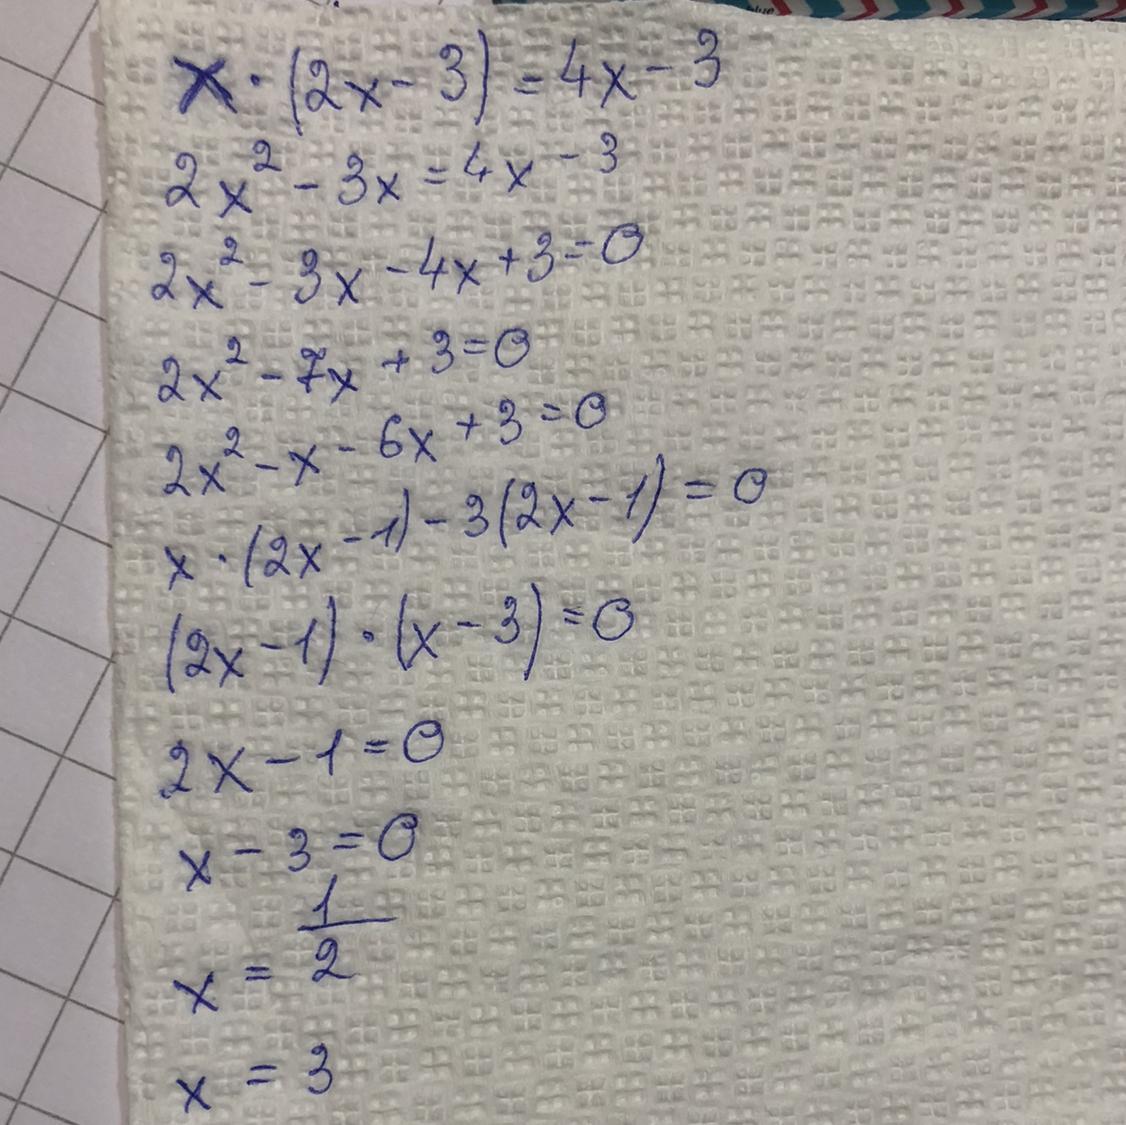 blue
x · (2x - 3) = 4x - 3
2x² - 3x = 4x - 3
2x² - 3x - 4x + 3 = 0
2x² - 7x + 3 = 0
2x² - x - 6x + 3 = 0
x · (2x - 1) - 3(2x - 1) = 0
(2x - 1) · (x - 3) = 0
2x - 1 = 0
x - 3 = 0
x = 1/2
x = 3